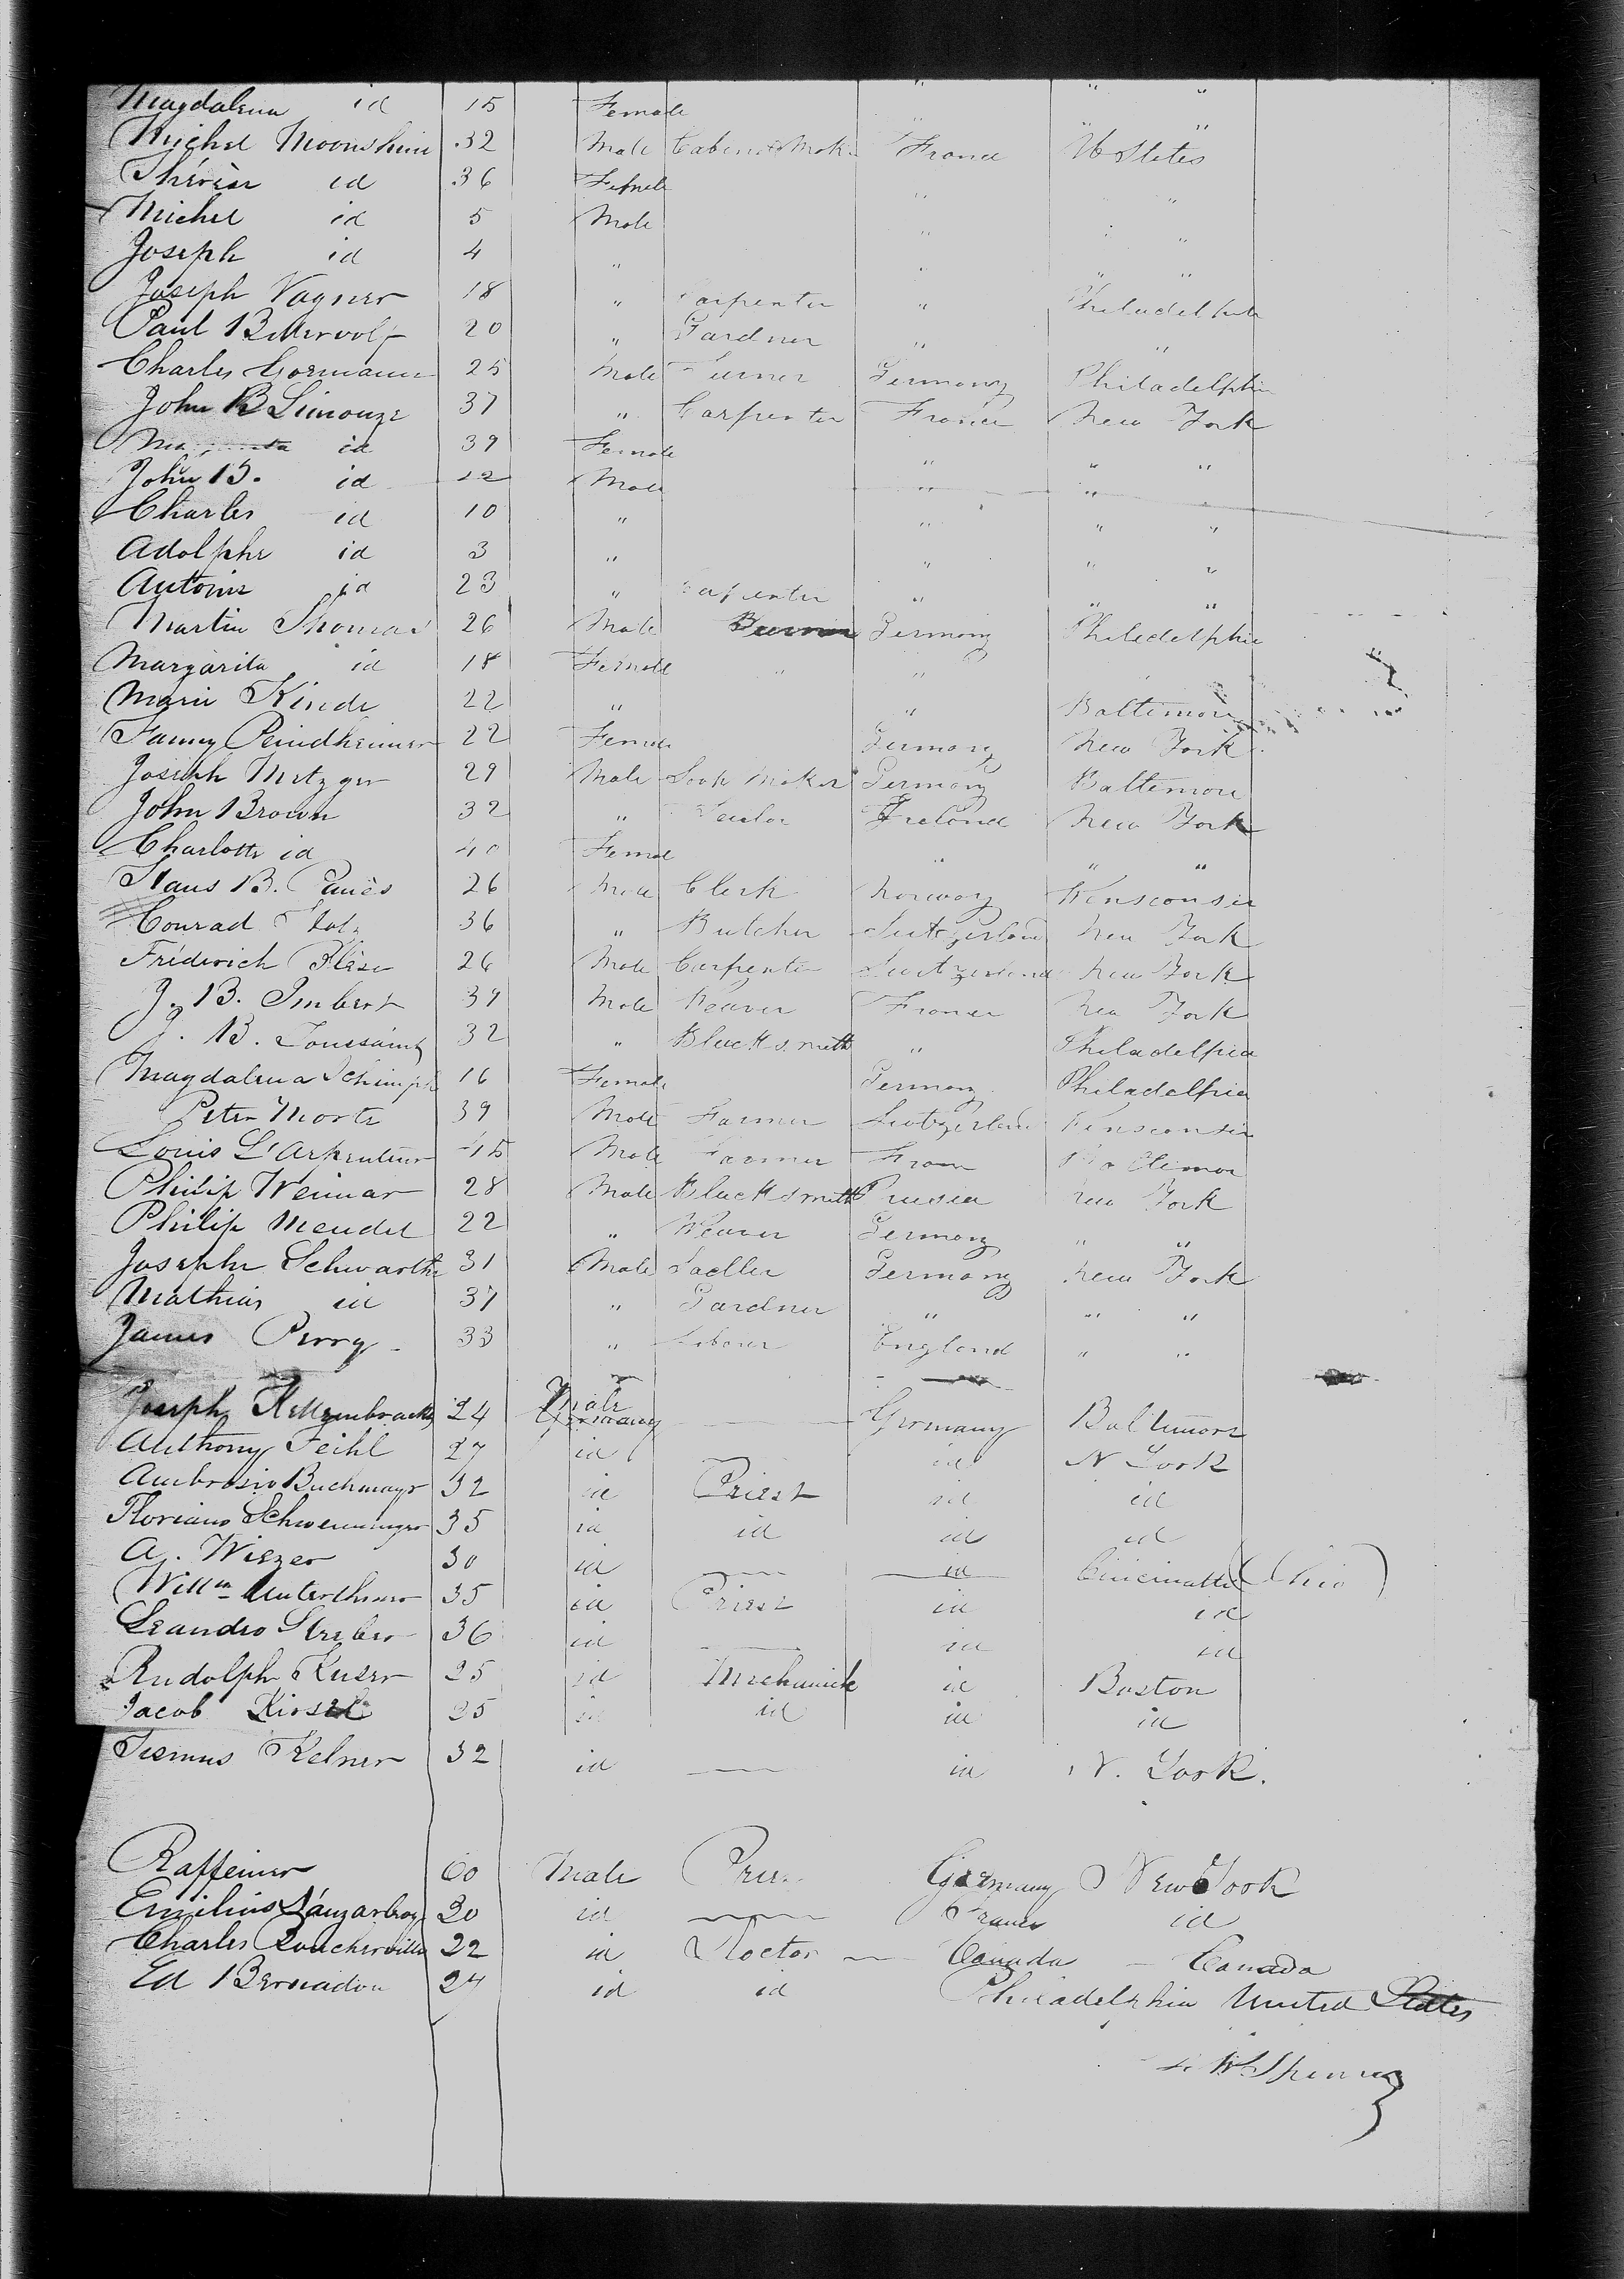 Magdalena id 15 Female " " "
Michel Moonshine 32 Male Cabinet Mak. France U States
Thérèse id 36 Female " "
Michel id 5 Male " " "
Joseph id 4 " " " "
Joseph Vagner 18 " Carpenter " Philadelphia
Paul Bitterwolf 20 " Gardner " "
Charles Gormann 25 Male Turner Germany Philadelphia
John B Limouze 37 " Carpenter France New York
id 39 Female " " "
John B. id 12 Male " "
Charles id 10 " " " "
Adolphe id 3 " " " "
Antoine id 23 " Carpenter " " "
Martin Thomas 26 Male Germany Philadelphia
Margarita id 18 Female " "
Marie Kinde 22 " " Baltimore
Fanny Peindheimer 22 Female Germany New York
Joseph Metzger 29 Male Soap Maker Germany Baltimore
John Brown 32 " Ireland New York
Charlotte id 40 Femal " " "
Hans B. 26 Male Clerk Norway Wensconsin
Conrad 36 " Butcher Switzerland New York
Fréderich 26 Male Carpenter Switzerland New York
J. B. Imbert 39 Male Weaver France New York
J. B. Toussaint 32 " Blacksmith " Philadelphia
Magdalena Schimph 16 Female Germany Philadelphia
Peter Morts 39 Male Farmer Switzerland Wensconsin
Louis L'Arpenteur 45 Male Farmer Fran Baltimor
Philip Weimar 28 Male Blacksmith Prusia New York
Philip Mendel 22 " Weaver Germany " "
Josephe Schwarthe 31 Male Sadler Germany New York
Mathias id 37 " Gardner " " "
James Perry 33 " Laborer England " "
Joseph 24 Male Germany Germany Baltimore
Anthony Feihl 27 id id N York
Ambrosio Buchmayr 32 id Priest id id
Floriano Schweninger 35 id id id id
A. Wiezer 30 id id Cincinatti (Ohio)
Willm Unterthiner 35 id Priest id id
Leandro Streber 36 id id id
Rudolph Kuser 25 id Mechanick id Boston
Jacob 25 id id id id
Kelner 32 id id N. York.
Raffeiner 60 Male Pries Germany New York
Emilius 30 id France id
Charles Boucherville 22 id Doctor Canada Canada
Ed Bernadou 24 id id Philadelphia United States